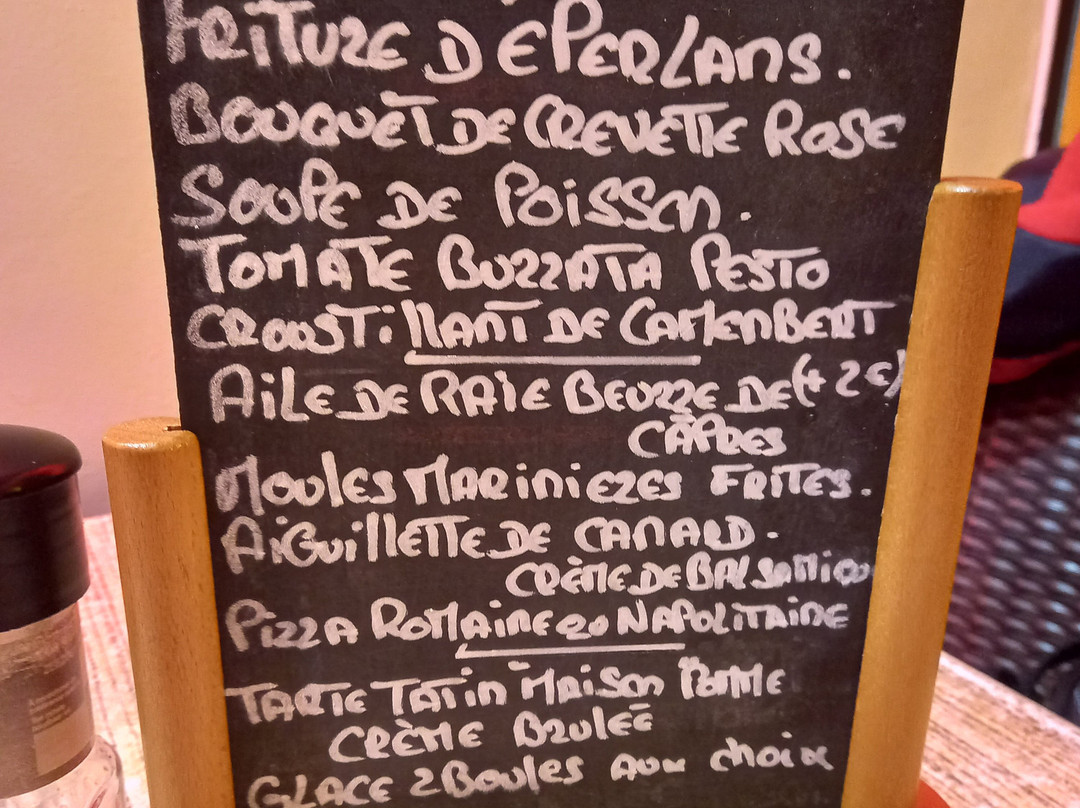 FRITURE D EPERLANS.
BOUQUET DE CREVETTE ROSE
SOUPE DE POISSON.
TOMATE BURRATA PESTO
CROUSTILLANT DE CAMEMBERT
AILE DE RAIE BEURRE DE (+ 2€)
CÂPRES
MOULES MARINIERES FRITES.
AIGUILLETTE DE CANARD.
CRÈME DE BALSAMICO
PIZZA ROMAINE OU NAPOLITAINE
TARTE TATIN MAISON POMME
CRÈME BRULEE
GLACE 2 BOULES AUX choix